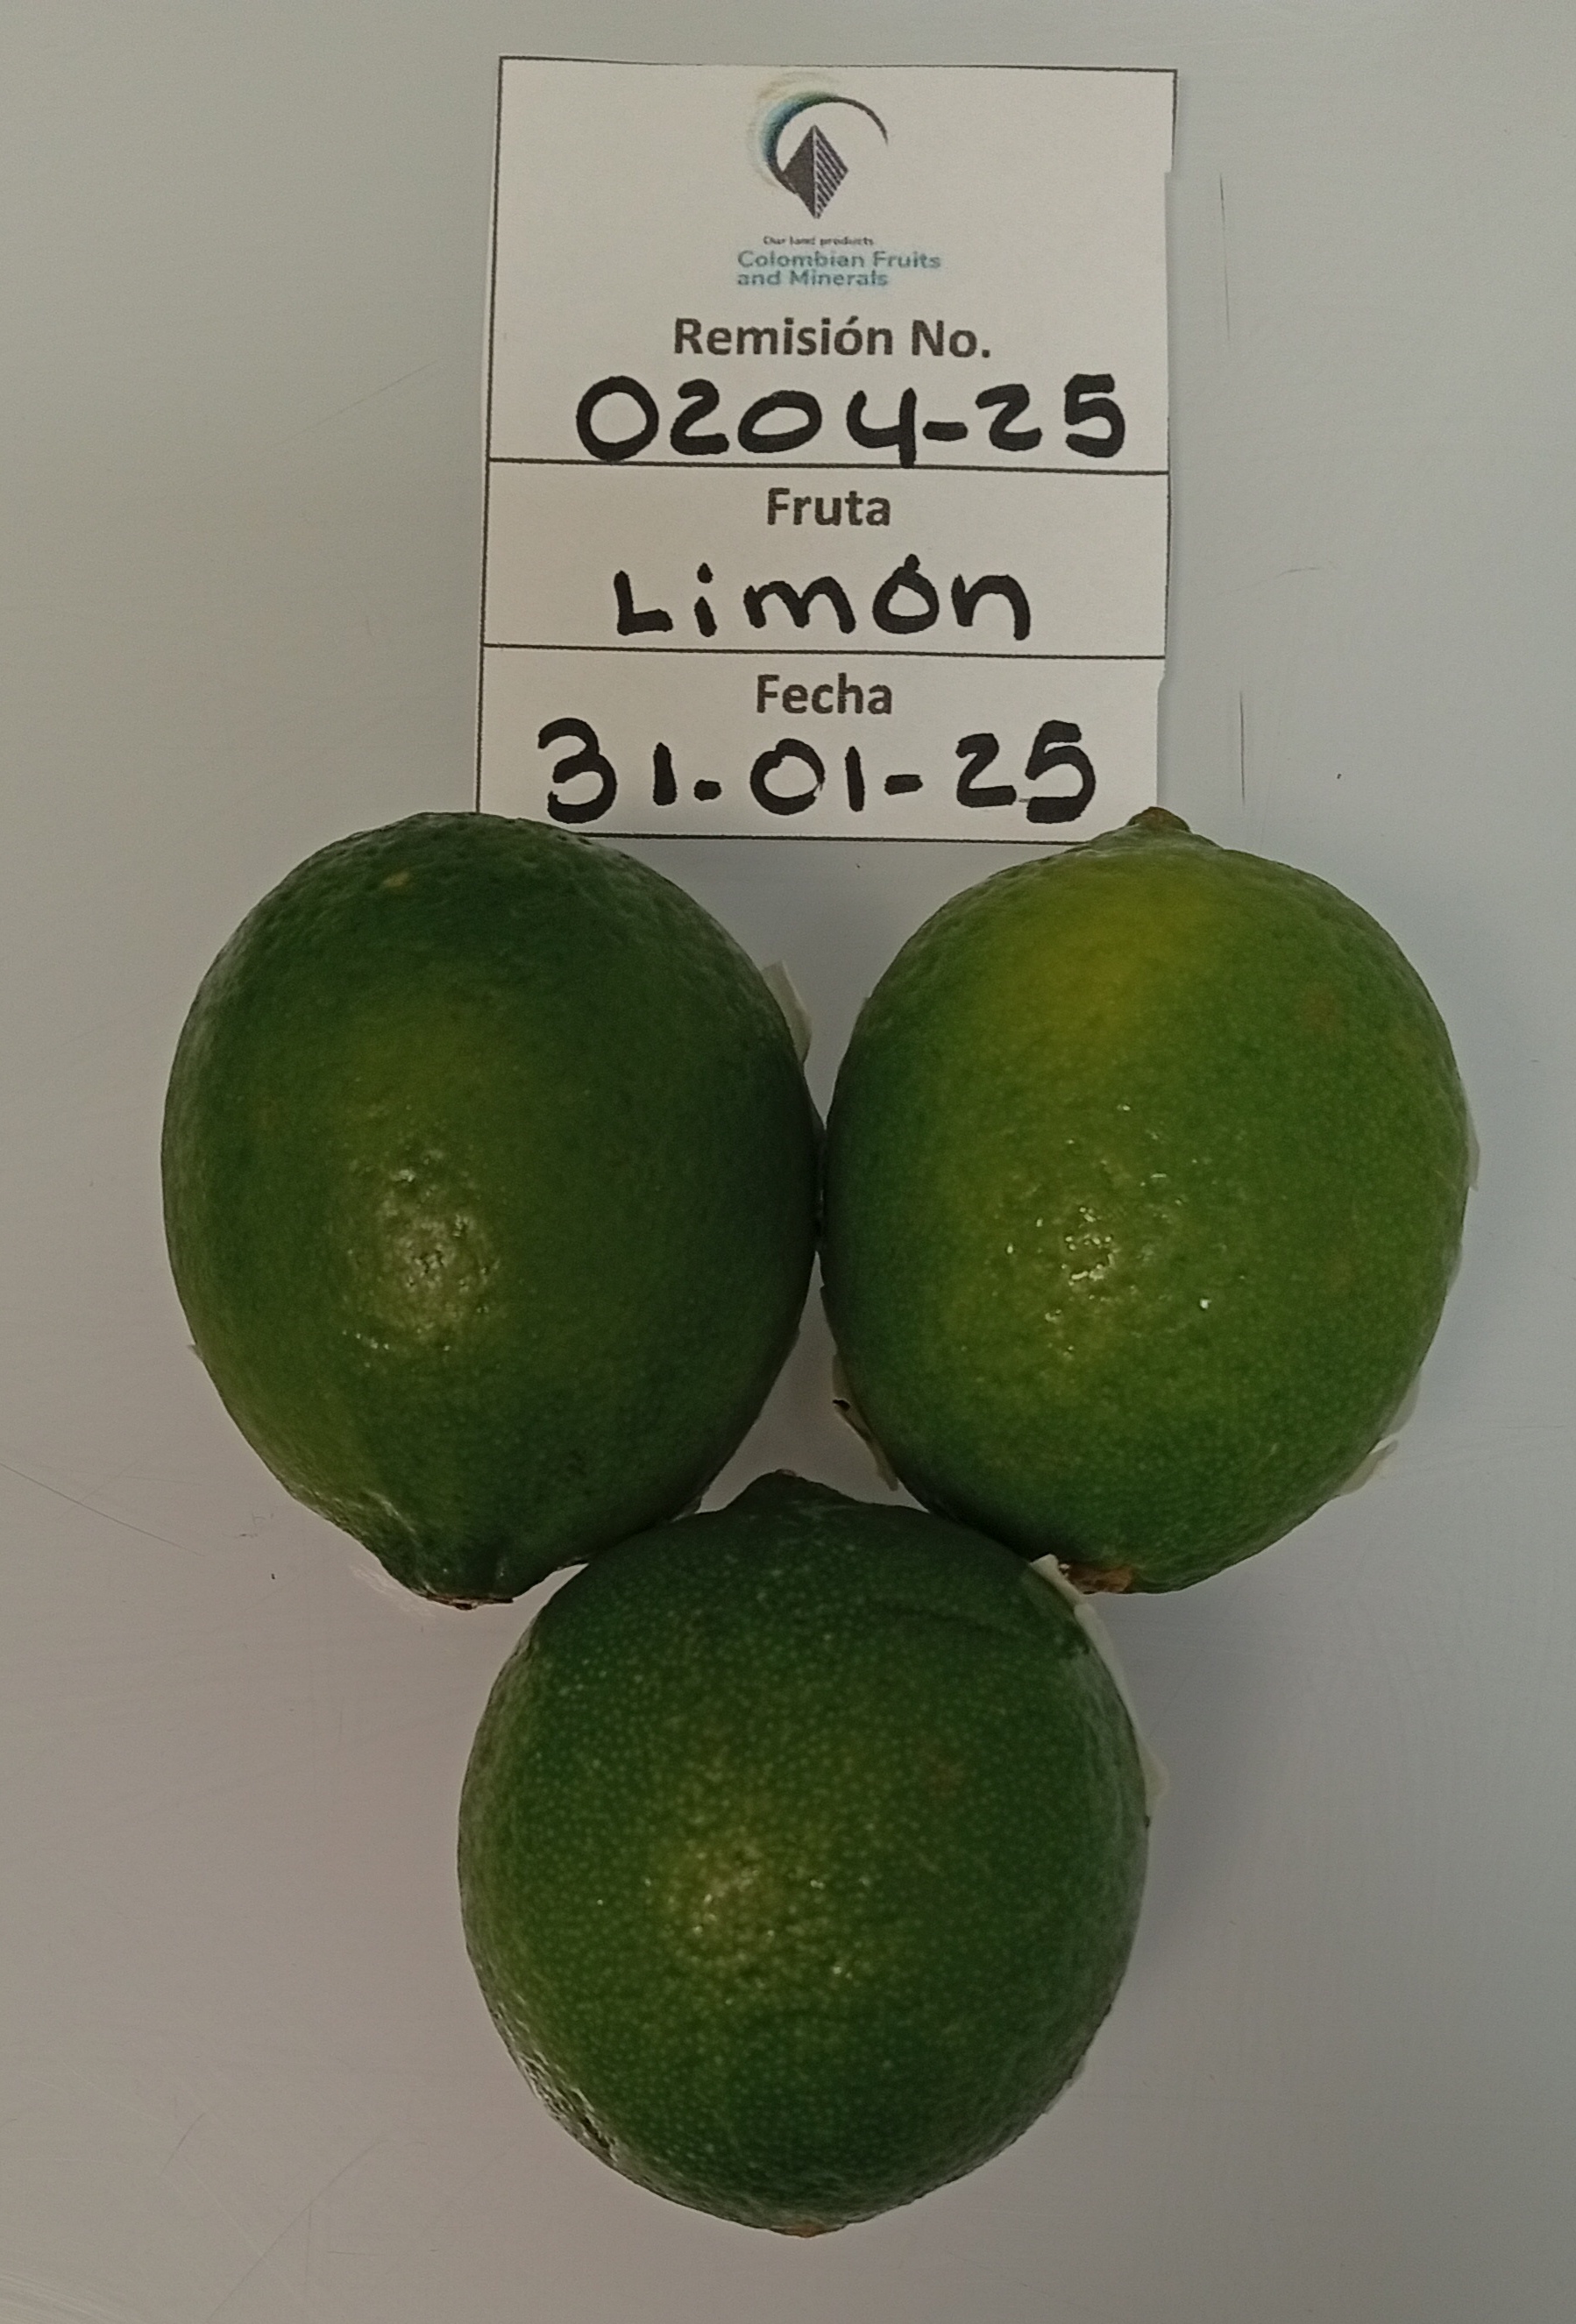 Our land products
Colombian Fruits
and Minerals
Remisión No.
0204-25
Fruta
Limón
Fecha
31-01-25